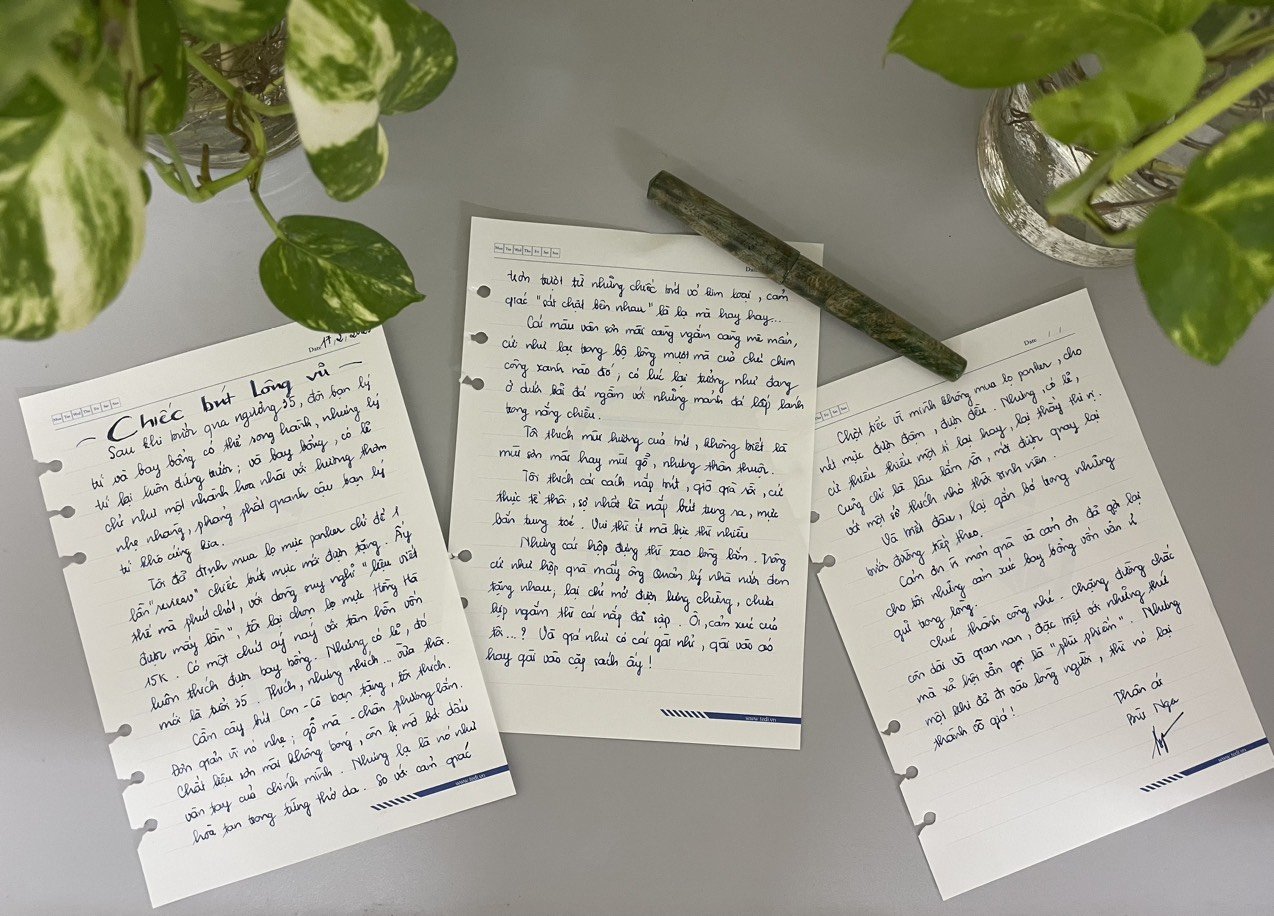 Date 17/2/202
Chiếc bút Lông vũ
Sau khi bước qua ngưỡng 35, đôi bạn lý
trí và bay bổng có thể song hành, nhưng lý
trí lại luôn đứng trước; và bay bổng, có lẽ
chỉ như một nhành hoa nhài với hương thơm
nhẹ nhàng, phảng phất quanh cậu bạn lý
trí khô cứng kia.
Tôi đã định mua lọ mực parker chỉ để 1
lần "review" chiếc bút mực mới được tặng. Ấy
thế mà phút chót, với dòng suy nghĩ "liệu viết
được mấy lần", tôi lại chọn lọ mực Hồng Hà
15K. Có một chút áy náy với tâm hồn vốn
luôn thích được bay bổng. Nhưng có lẽ, đó
mới là tuổi 35. Thích, nhưng nhích... vừa thôi.
Cầm cây bút Con-Cò bạn tặng, tôi thích.
Đơn giản vì nó nhẹ; gỗ mà - chân phương lắm.
Chất liệu sơn mài không bóng, còn bị mờ bởi dấu
vân tay của chính mình. Nhưng lạ là nó như
hoà tan trong từng thớ da. So với cảm giác
www.tedi.vn
Mon Tue Wed Thu Fri Sat Sun
trơn tuột từ những chiếc bút vỏ kim loại, cảm
giác "sát chặt bên nhau" là lạ mà hay hay...
Cái màu vân sơn mài càng ngắm càng mê mẩn,
cứ như lạc trong bộ lông mượt mà của chú chim
công xanh nào đó; có lúc lại tưởng như đang
ở dưới bể đá ngầm với những mảnh đá lấp lánh
trong nắng chiều.
Tôi thích mùi hương của bút, không biết là
mùi sơn mài hay mùi gỗ, nhưng thân thuộc.
Tôi thích cái cách nắp bút, giờ già rồi, cứ
thực tế thôi, sợ nhất là nắp bút tung ra, mực
bắn tung toé. Vui thì ít mà bực thì nhiều
Nhưng cái hộp đựng thì xao lòng lắm. Trông
cứ như hộp quà mấy ông Quản lý nhà nước đem
tặng nhau; lại chỉ mở được lưng chừng, chưa
kịp ngắm thì cái nắp đã sập. Ôi, cảm xúc của
tôi...? Và giá như có cái gài nhỉ, gài vào áo
hay gài vào cặp sách ấy!
www.tedi.vn
Date
Chợt tiếc vì mình không mua lọ parker, cho
nét mực được đậm, được đều. Nhưng, có lẽ,
cứ thiếu thiếu một tí lại hay, lại thấy thi vị.
Cũng chỉ là lâu lắm rồi, mới được quay lại
với một sở thích nhỏ thời sinh viên.
Và biết đâu, lại gắn bó trong những
bước đường tiếp theo.
Cảm ơn vì món quà và cảm ơn đã gợi lại
cho tôi những cảm xúc bay bổng vốn vẫn
giữ trong lòng.
Chúc thành công nhé. Chặng đường chắc
còn dài và gian nan, đặc biệt với những thứ
mà xã hội vẫn gọi là "phù phiếm". Nhưng
một khi đã đi vào lòng người, thì nó lại
thành vô giá!
Thân ái
www.tedi.vn